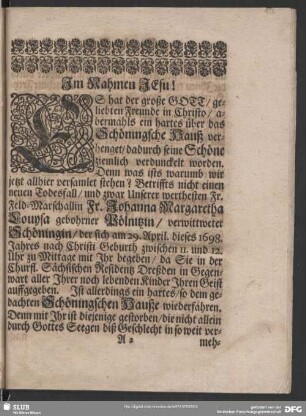 Im Nahmen JEsu!
ES hat der große GOTT/ ge-
liebten Freunde in Christo/ a-
bermahls ein hartes über das
Schöningsche Hauß ver-
henget/ dadurch seine Schöne
ziemlich verdunckelt worden.
Denn was ists warumb wir
jetzt allhier versamlet stehen? Betriffts nicht einen
neuen Todesfall/ und zwar Unserer werthesten Fr.
Feld-Marschallin Fr. Johanna Margaretha
Louysa gebohrner Pölnitzin/ verwittweter
Schöningin/ der sich am 29. April. dieses 1698.
Jahres nach Christi Geburth zwischen 11. und 12.
Uhr zu Mittage mit Jhr begeben/ da Sie in der
Churfl. Sächsischen Residentz Dreßden in Gegen-
wart aller Jhrer noch lebenden Kinder Jhren Geist
auffgegeben. Jst allerdings ein hartes/ so dem ge-
dachten Schöningschen Hauße wiederfahren.
Denn mit Jhr ist diejenige gestorben/ die nicht allein
durch Gottes Seegen diß Geschlecht in so weit ver-
A 2 meh-
SLUB
Wir führen Wissen.
gefördert von der
Deutschen Forschungsgemeinschaft
DFG